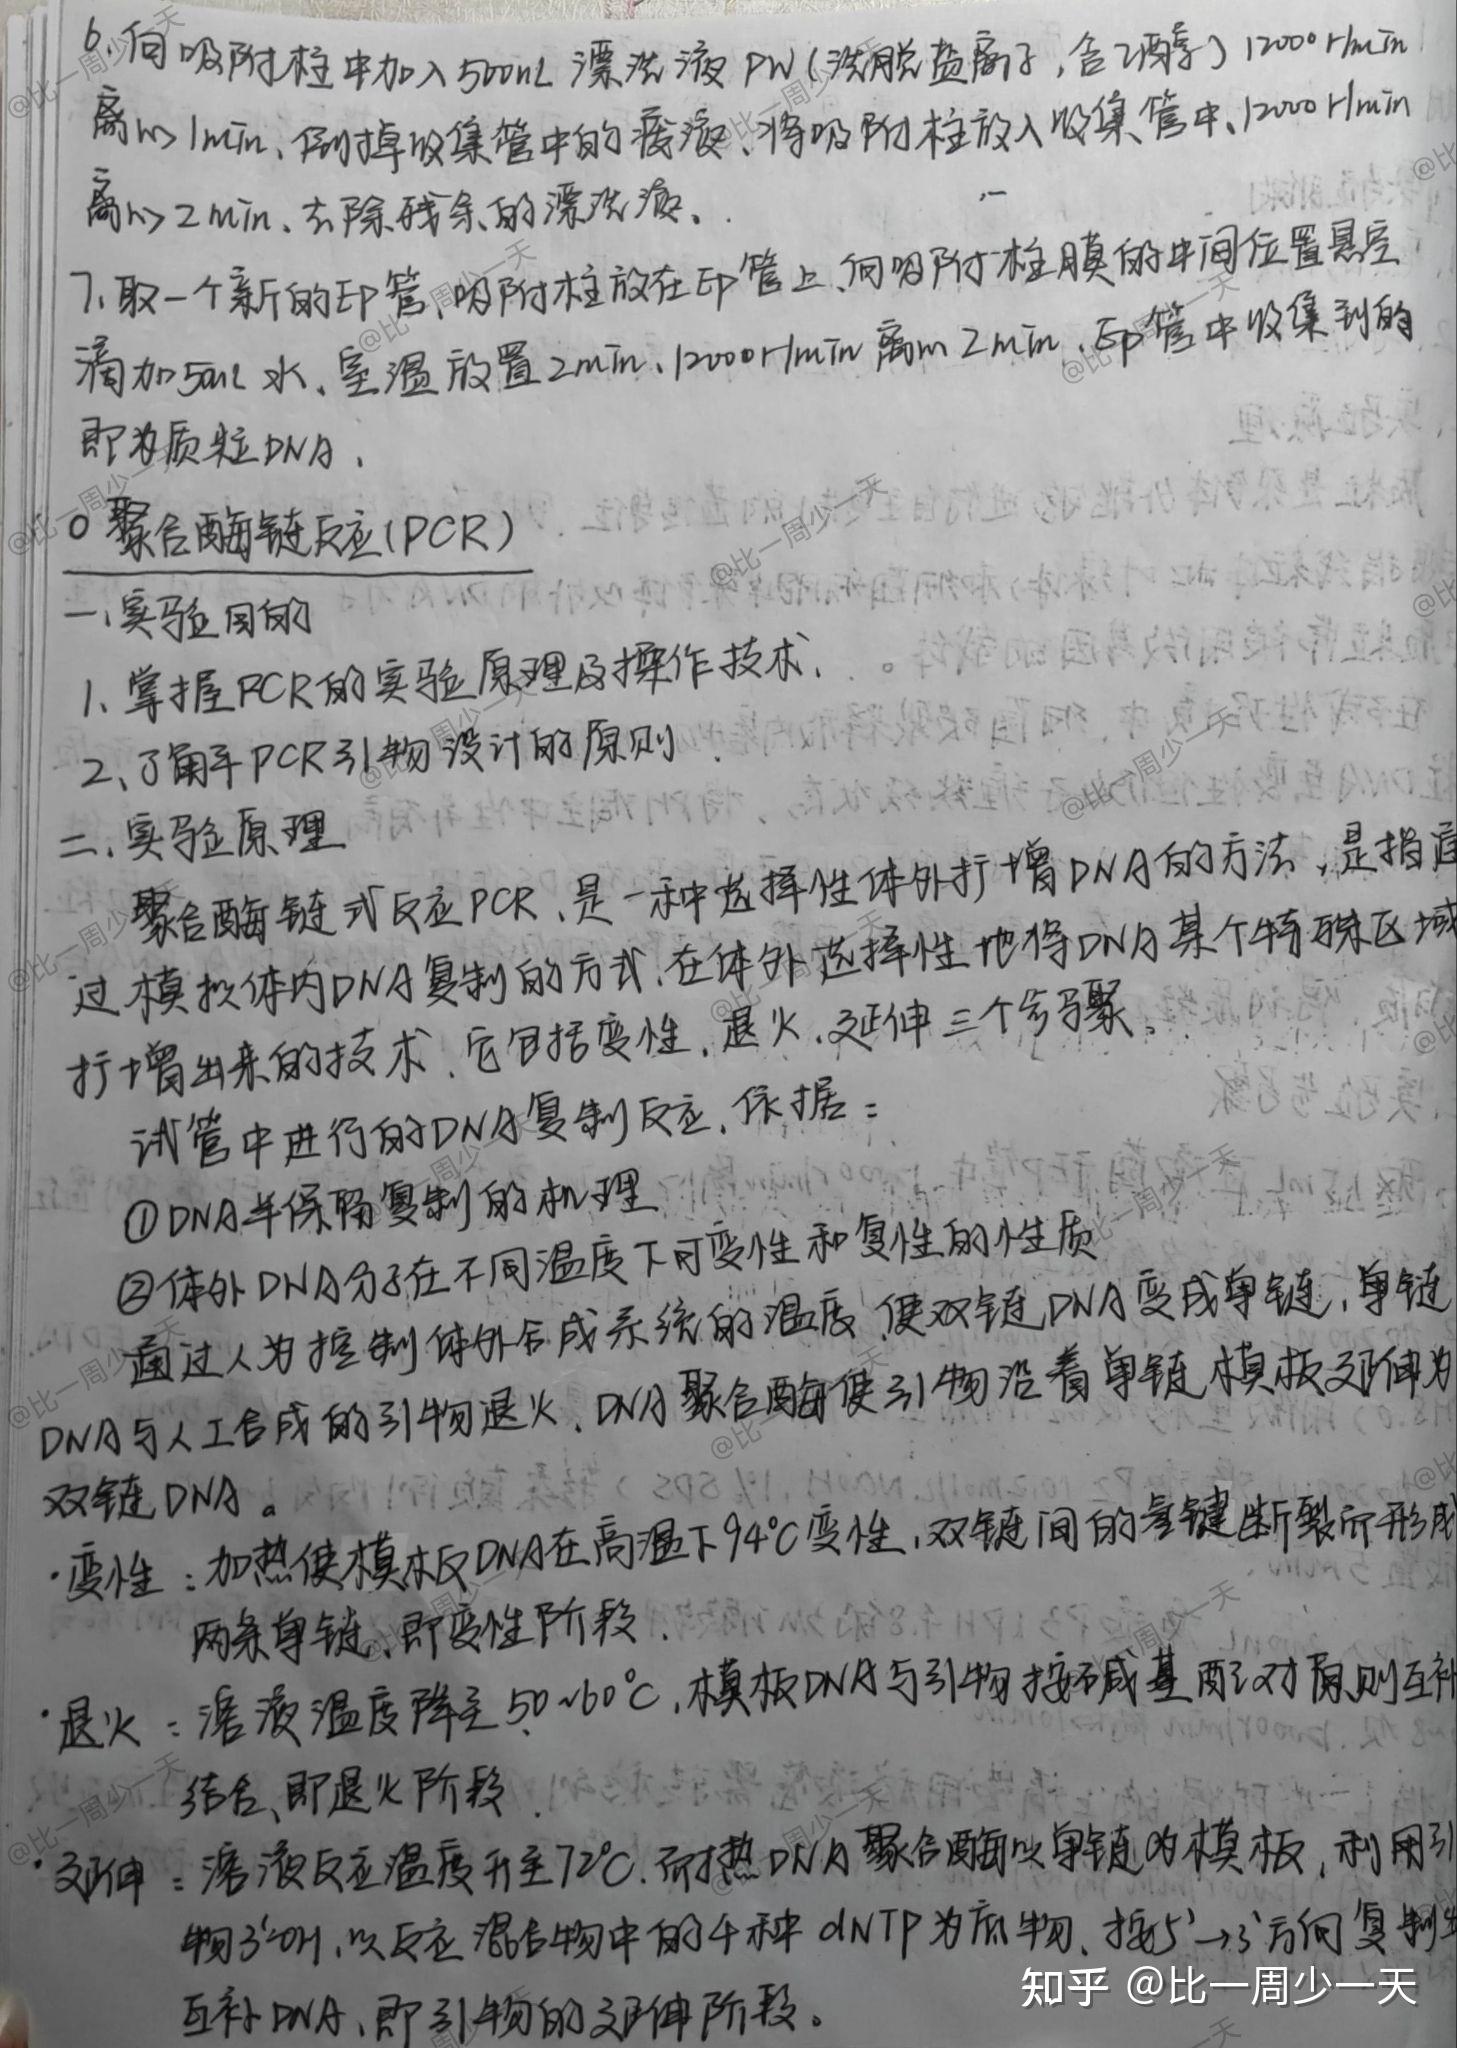 6、向吸附柱中加入500uL漂洗液PW(洗脱盐离子,含乙醇)12000r/min
离心1min、倒掉收集管中的废液、将吸附柱放入收集管中、12000r/min
离心2min、去除残余的漂洗液、
7、取一个新的EP管、吸附柱放在EP管上、向吸附柱膜的中间位置悬空
滴加50uL水、室温放置2min、12000r/min离心2min、EP管中收集到的
即为质粒DNA、
○聚合酶链反应(PCR)
一、实验目的
1、掌握PCR的实验原理及操作技术、
2、了解PCR引物设计的原则、
二、实验原理
聚合酶链式反应PCR、是一种选择性体外扩增DNA的方法、是指通
过模拟体内DNA复制的方式、在体外选择性地将DNA某个特殊区域
扩增出来的技术、它包括变性、退火、延伸三个步骤、
试管中进行的DNA复制反应、依据:
①DNA半保留复制的机理
②体外DNA分子在不同温度下可变性和复性的性质
通过人为控制体外合成系统的温度、使双链DNA变成单链,单链
DNA与人工合成的引物退火、DNA聚合酶使引物沿着单链模板延伸为
双链DNA。
·变性:加热使模板DNA在高温下94℃变性,双链间的氢键断裂而形成
两条单链、即变性阶段、
·退火:溶液温度降至50~60℃,模板DNA与引物按碱基配对原则互补
结合、即退火阶段、
·延伸:溶液反应温度升至72℃、耐热DNA聚合酶以单链为模板,利用引
物3'-OH,以反应混合物中的4种dNTP为底物、按5'→3'方向复制出
互补DNA、即引物的延伸阶段。
知乎 @比一周少一天